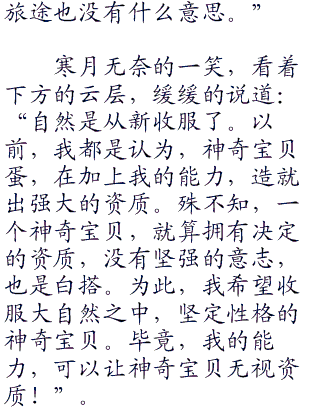 旅途也没有什么意思。”
寒月无奈的一笑，看着
下方的云层，缓缓的说道：
“自然是从新收服了。以
前，我都是认为，神奇宝贝
蛋，在加上我的能力，造就
出强大的资质。殊不知，一
个神奇宝贝，就算拥有决定
的资质，没有坚强的意志，
也是白搭。为此，我希望收
服大自然之中，坚定性格的
神奇宝贝。毕竟，我的能
力，可以让神奇宝贝无视资
质！”。